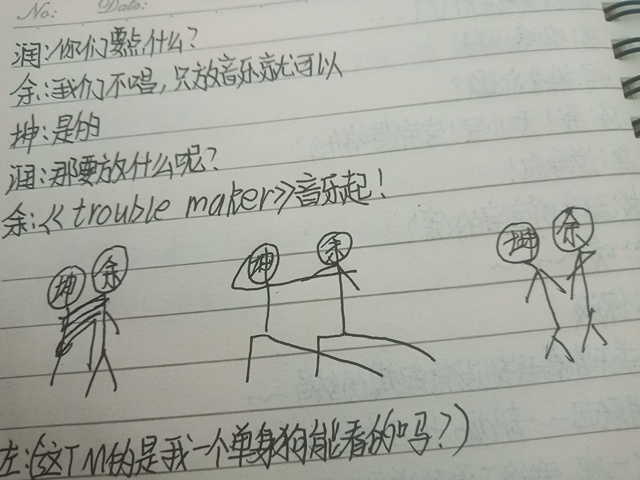 No:
Date:
润:你们要点什么?
余:我们不唱,只放音乐就可以
坤:是的
润:那要放什么呢?
余:《trouble maker》音乐起!
坤 余 坤 余 坤 余
左:(这TM的是我一个单身狗能看的吗?)